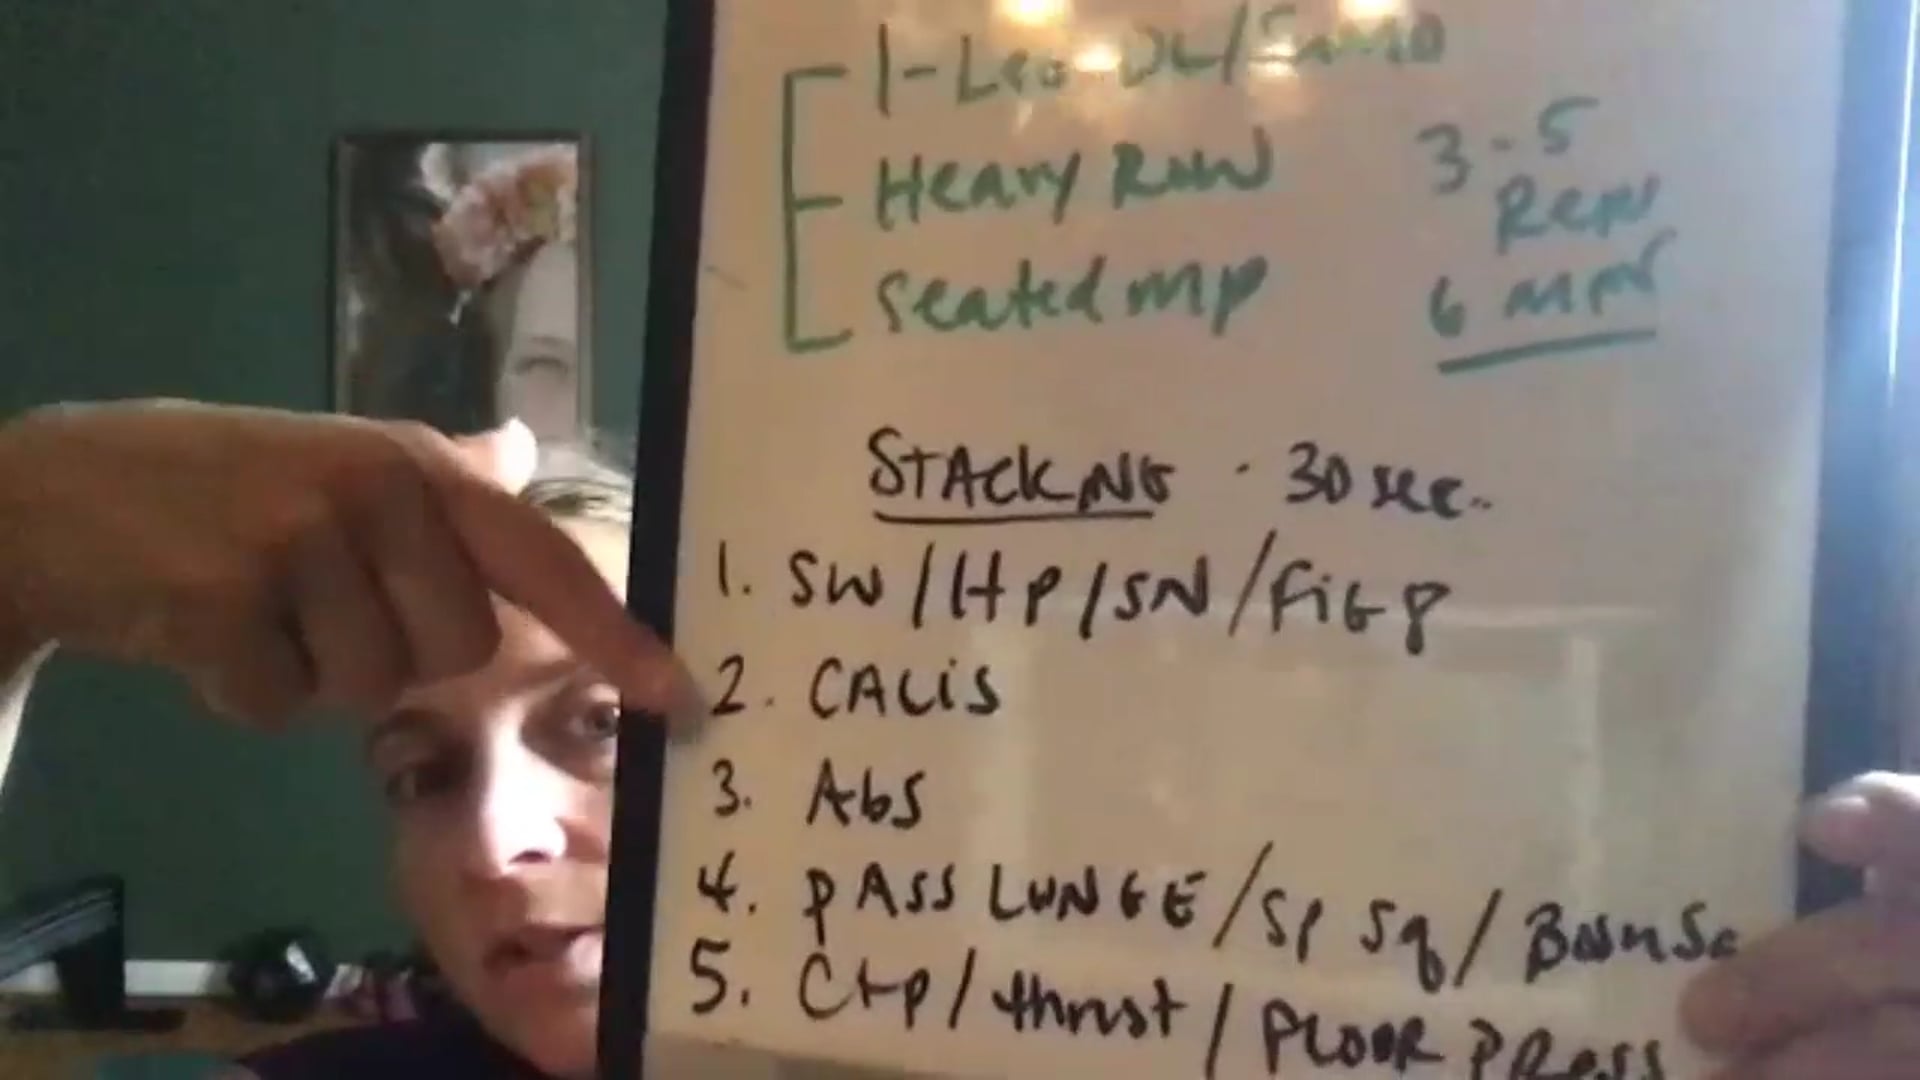 1-Leg DL/Sumo
Heavy Row
3-5
Reps
Seated mp
6 min
STACKING · 30 sec.
1. SW/HP/SN/Fig 8
2. CALiS
3. Abs
4. PASS LUNGE/Sp Sq/
5. C+P/thrust/FLOOR PRESS